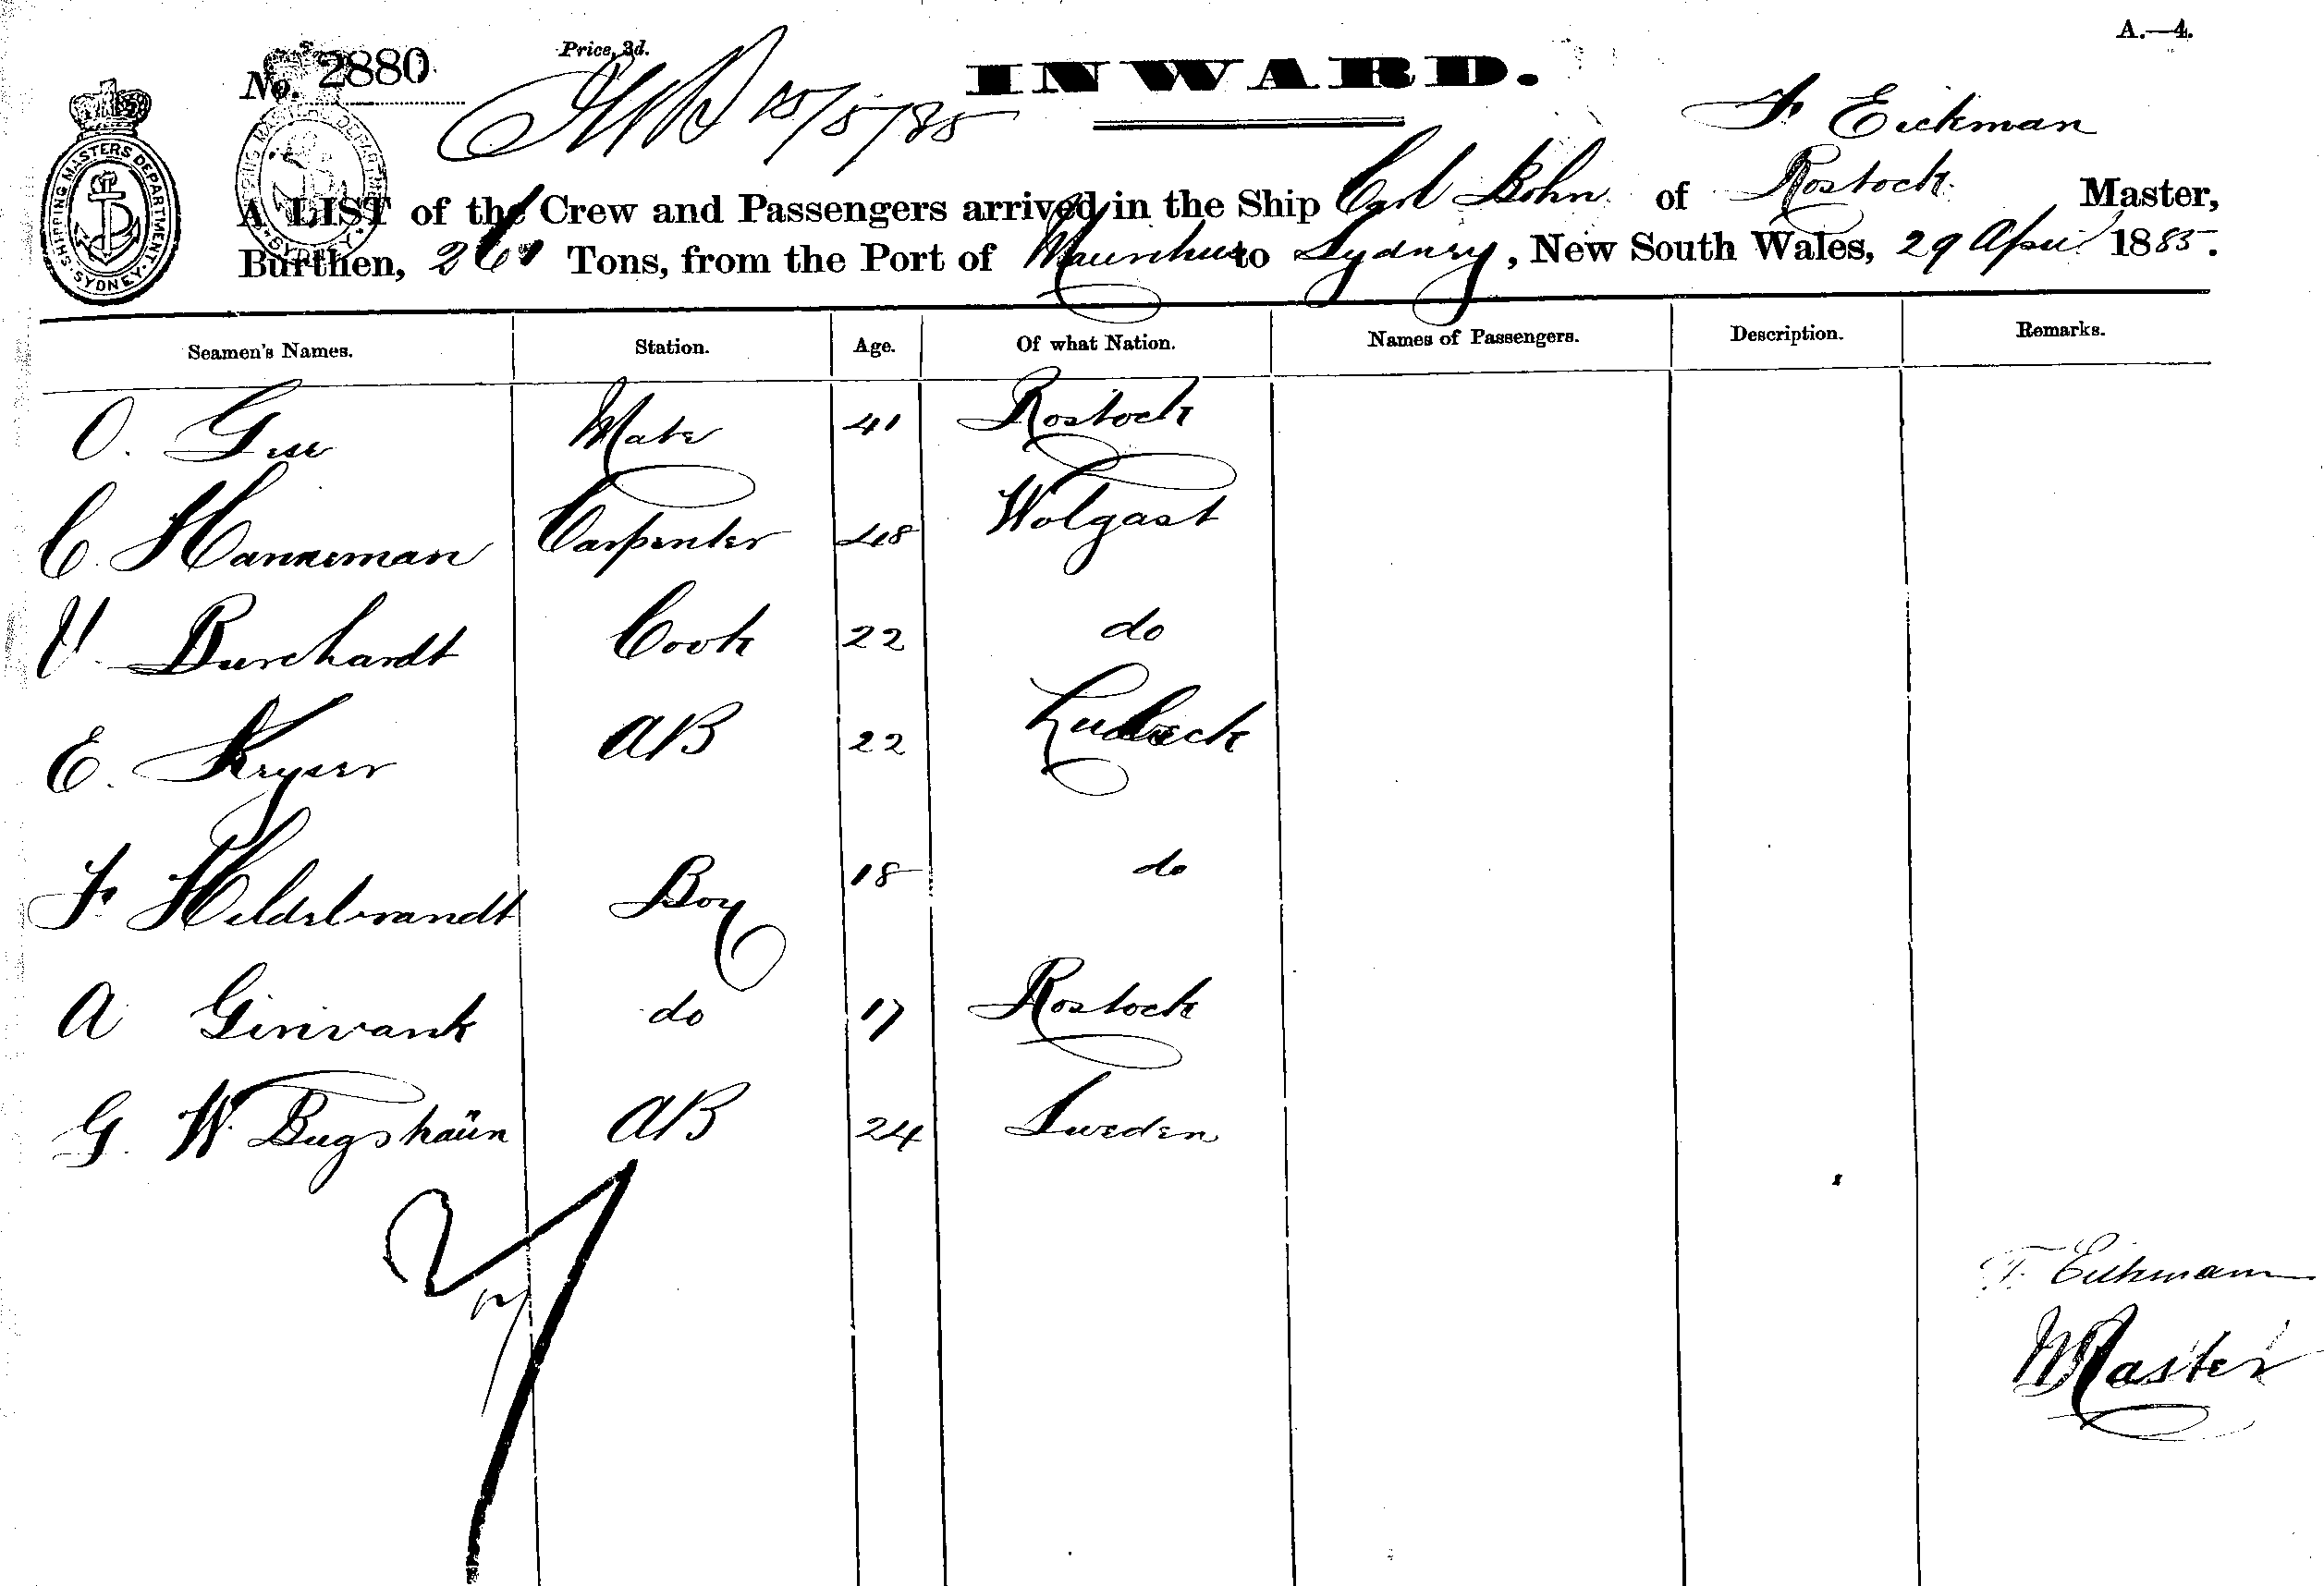 A.—4.
No. 2880
Price, 3d.
15/5/85
INWARD.
F Eickman
A LIST of the Crew and Passengers arrived in the Ship Carl Bohn of Rostock Master,
Burthen, Tons, from the Port of Mauritius to Sydney, New South Wales, 29 April 1885.
SHIPPING MASTERS DEPARTMENT. SYDNEY.
Seamen's Names. Station. Age. Of what Nation. Names of Passengers. Description. Remarks.
O. Mate 41 Rostock
C. Hanneman Carpenter 48 Wolgast
Burchardt Cook 22 do
E. Keyser AB 22 Lubeck
F Hildebrandt Boy 18 do
A do 17 Rostock
G. W. AB 24 Sweden
F. Eickmann
Master